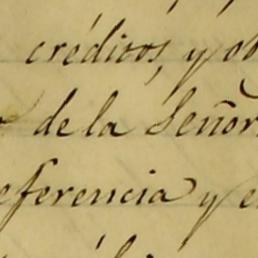 créditos, y ob
de la Señor
eferencia y e